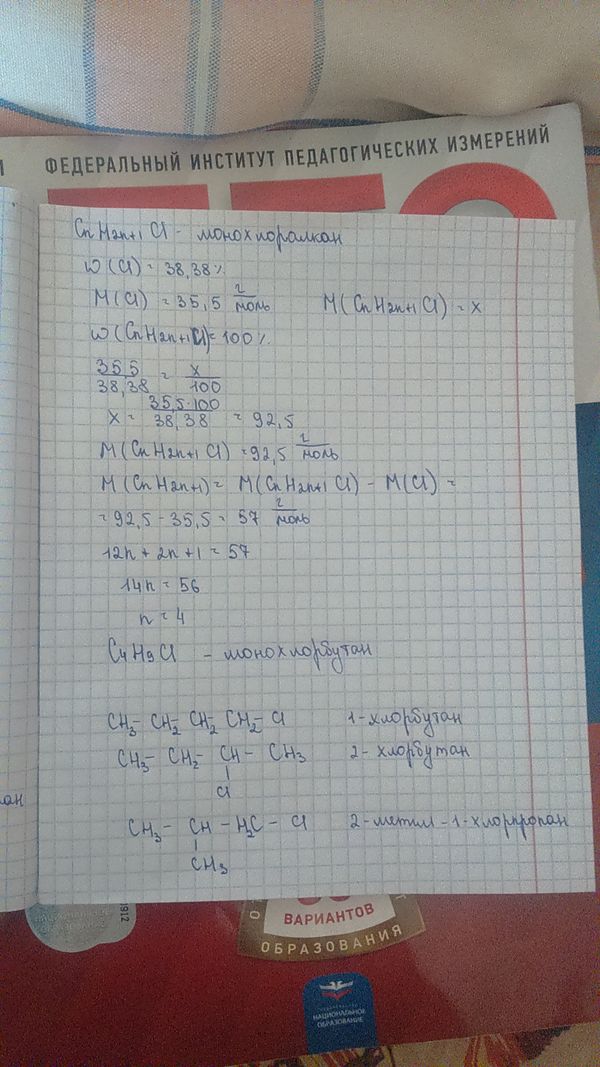 ФЕДЕРАЛЬНЫЙ ИНСТИТУТ ПЕДАГОГИЧЕСКИХ ИЗМЕРЕНИЙ
CnH2n+1 Cl - монохлоралкан
W(Cl) = 38,38%
M(Cl) = 35,5 г/моль M(CnH2n+1Cl) = x
W(CnH2n+1Cl) = 100%
35 5/38,38 = x/100
x = 35,5·100/38,38 = 92,5
M(CnH2n+1 Cl) = 92,5 г/моль
M(CnH2n+1) = M(CnH2n+1 Cl) - M(Cl) =
= 92,5 - 35,5 = 57 г/моль
12n + 2n + 1 = 57
14n = 56
n = 4
C4H9Cl - монохлорбутан
CH3- CH2 CH2 CH2- Cl 1-хлорбутан
CH3- CH2- CH- CH3 2-хлорбутан
Cl
CH3- CH - H2C - Cl 2-метил-1-хлорпропан
CH3
1912
ВАРИАНТОВ
ОБРАЗОВАНИЯ
НАЦИОНАЛЬНОЕ
ОБРАЗОВАНИЕ